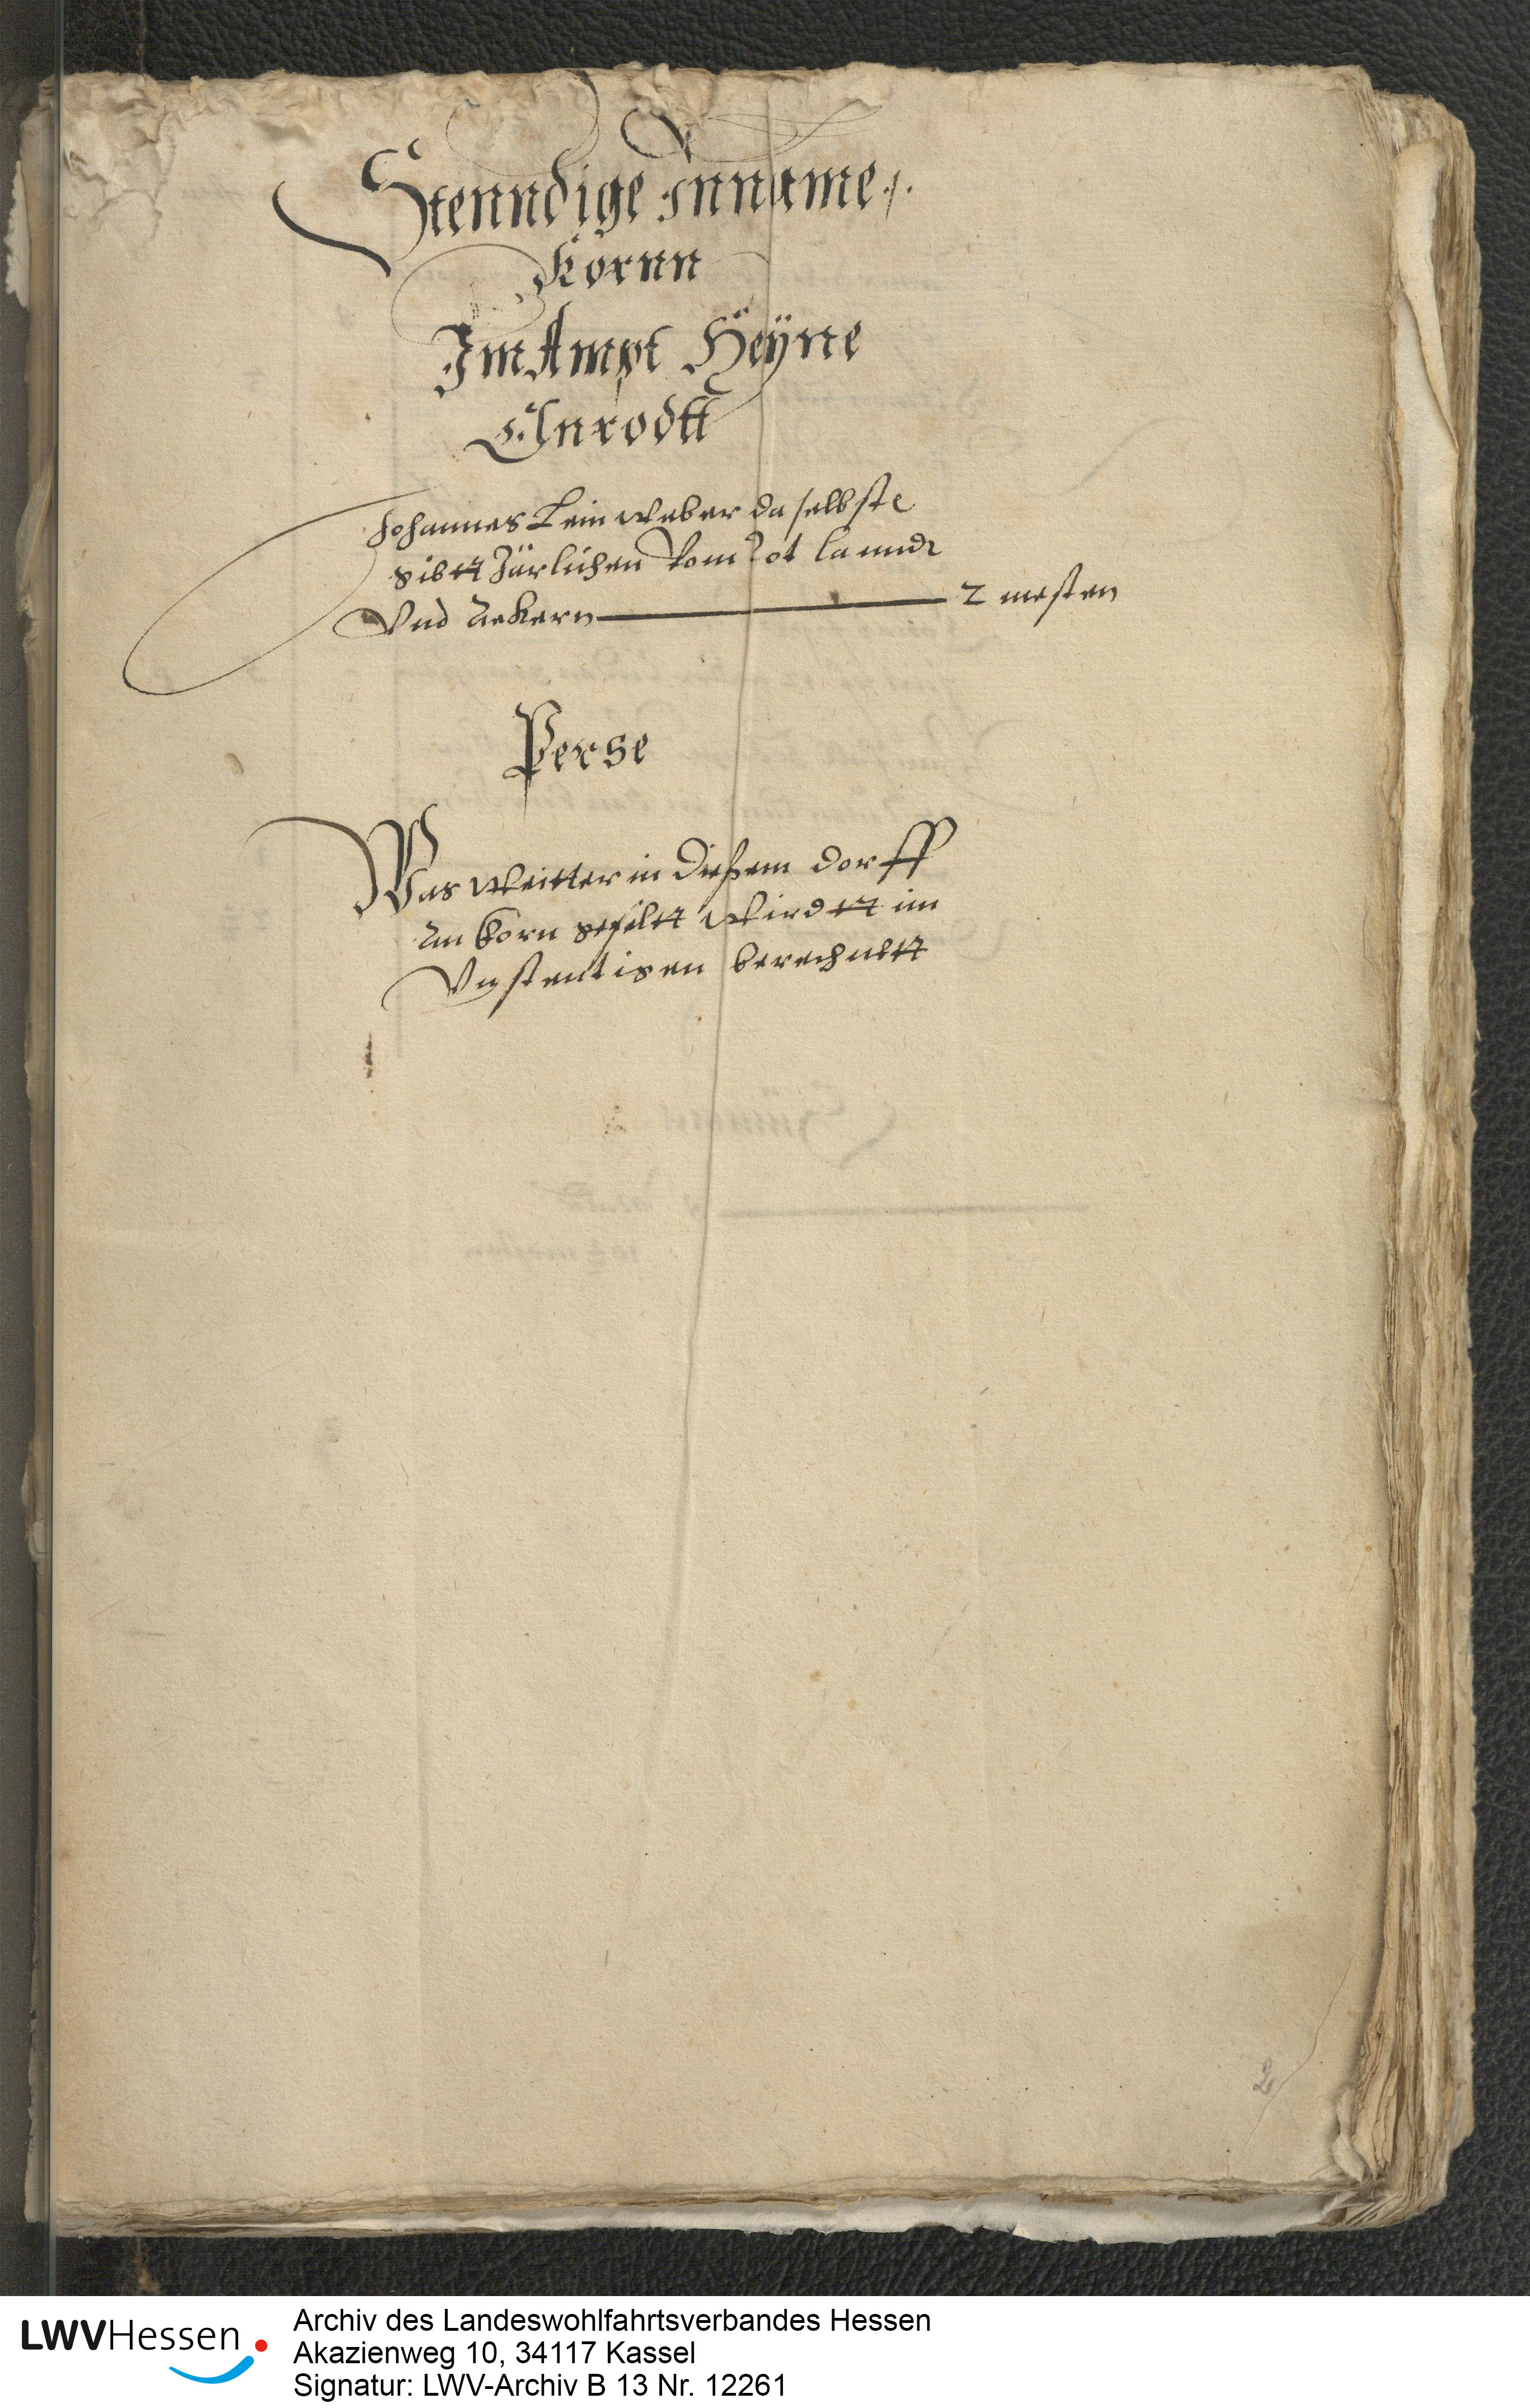 Stenndige Inname
Kornn
Im Ampt Heÿne
Elnrodtt
Johannes Leinweber daselbste
gibtt Järlichen vom Rot lannde
Vnd Aekern 2 mesten
Perse
Was weitter in dießem dorff
An korn gefeltt wirdtt im
Vnstentigen berechnett
2
LWVHessen
Archiv des Landeswohlfahrtsverbandes Hessen
Akazienweg 10, 34117 Kassel
Signatur: LWV-Archiv B 13 Nr. 12261